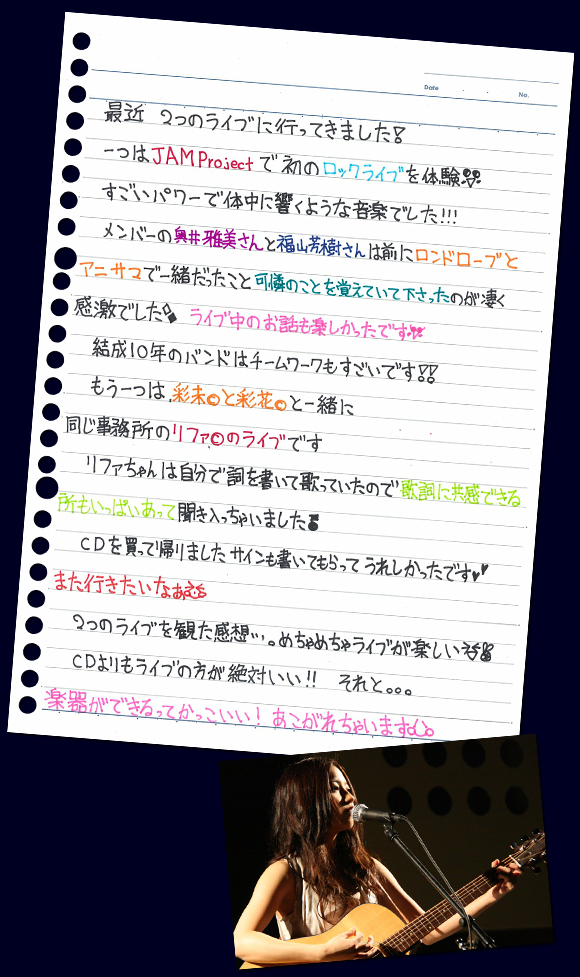 Date
No.
最近 2つのライブに行ってきました!
一つはJAMProjectで初のロックライブを体験!!
すごいパワーで体中に響くような音楽でした!!!
メンバーの奥井雅美さんと福山芳樹さんは前にロンドローブと
アニサマで一緒だったこと可憐のことを覚えていて下さったのが凄く
感激でした ライブ中のお話も楽しかったです
結成10年のバンドはチームワークもすごいです!!
もう一つは、彩未◎と彩花◎と一緒に
同じ事務所のリファ◎のライブです
リファちゃんは自分で詞を書いて歌っていたので歌詞に共感できる
所もいっぱいあって聞き入っちゃいました
CDを買って帰りました サインも書いてもらって うれしかったです♥♥
また行きたいなぁ
2つのライブを観た感想…。めちゃめちゃライブが楽しい
CDよりもライブの方が絶対いい!! それと。。。
楽器ができるってかっこいい! あこがれちゃいます